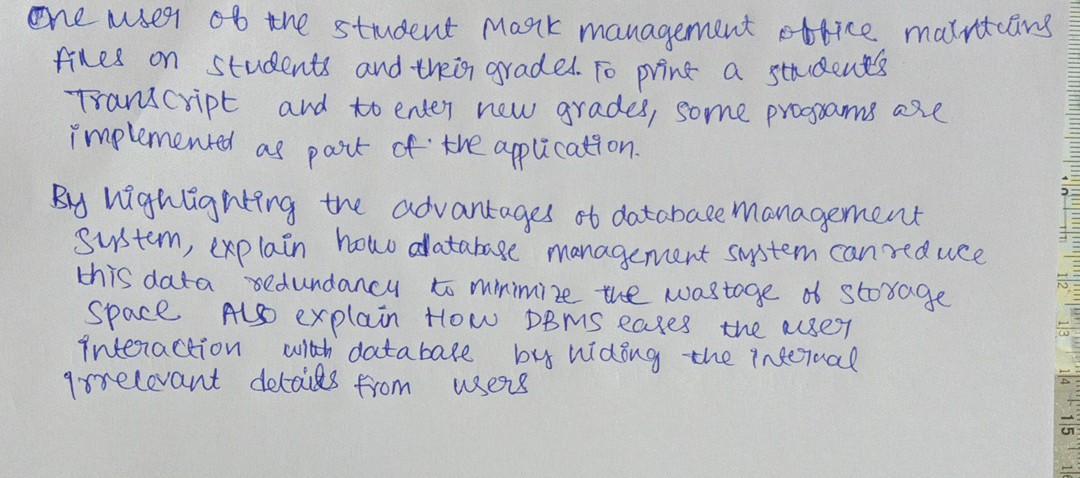 One user of the student Mark management office maintains
files on students and their grades. To print a students
Transcript and to enter new grades, some programs are
implemented as part of the application.
By highlighting the advantages of database Management
System, explain how database management system can reduce
this data redundancy to minimize the wastage of storage
space Also explain How DBMS eases the user
interaction with database by hiding the internal
irrelevant details from users
12
13
14
15